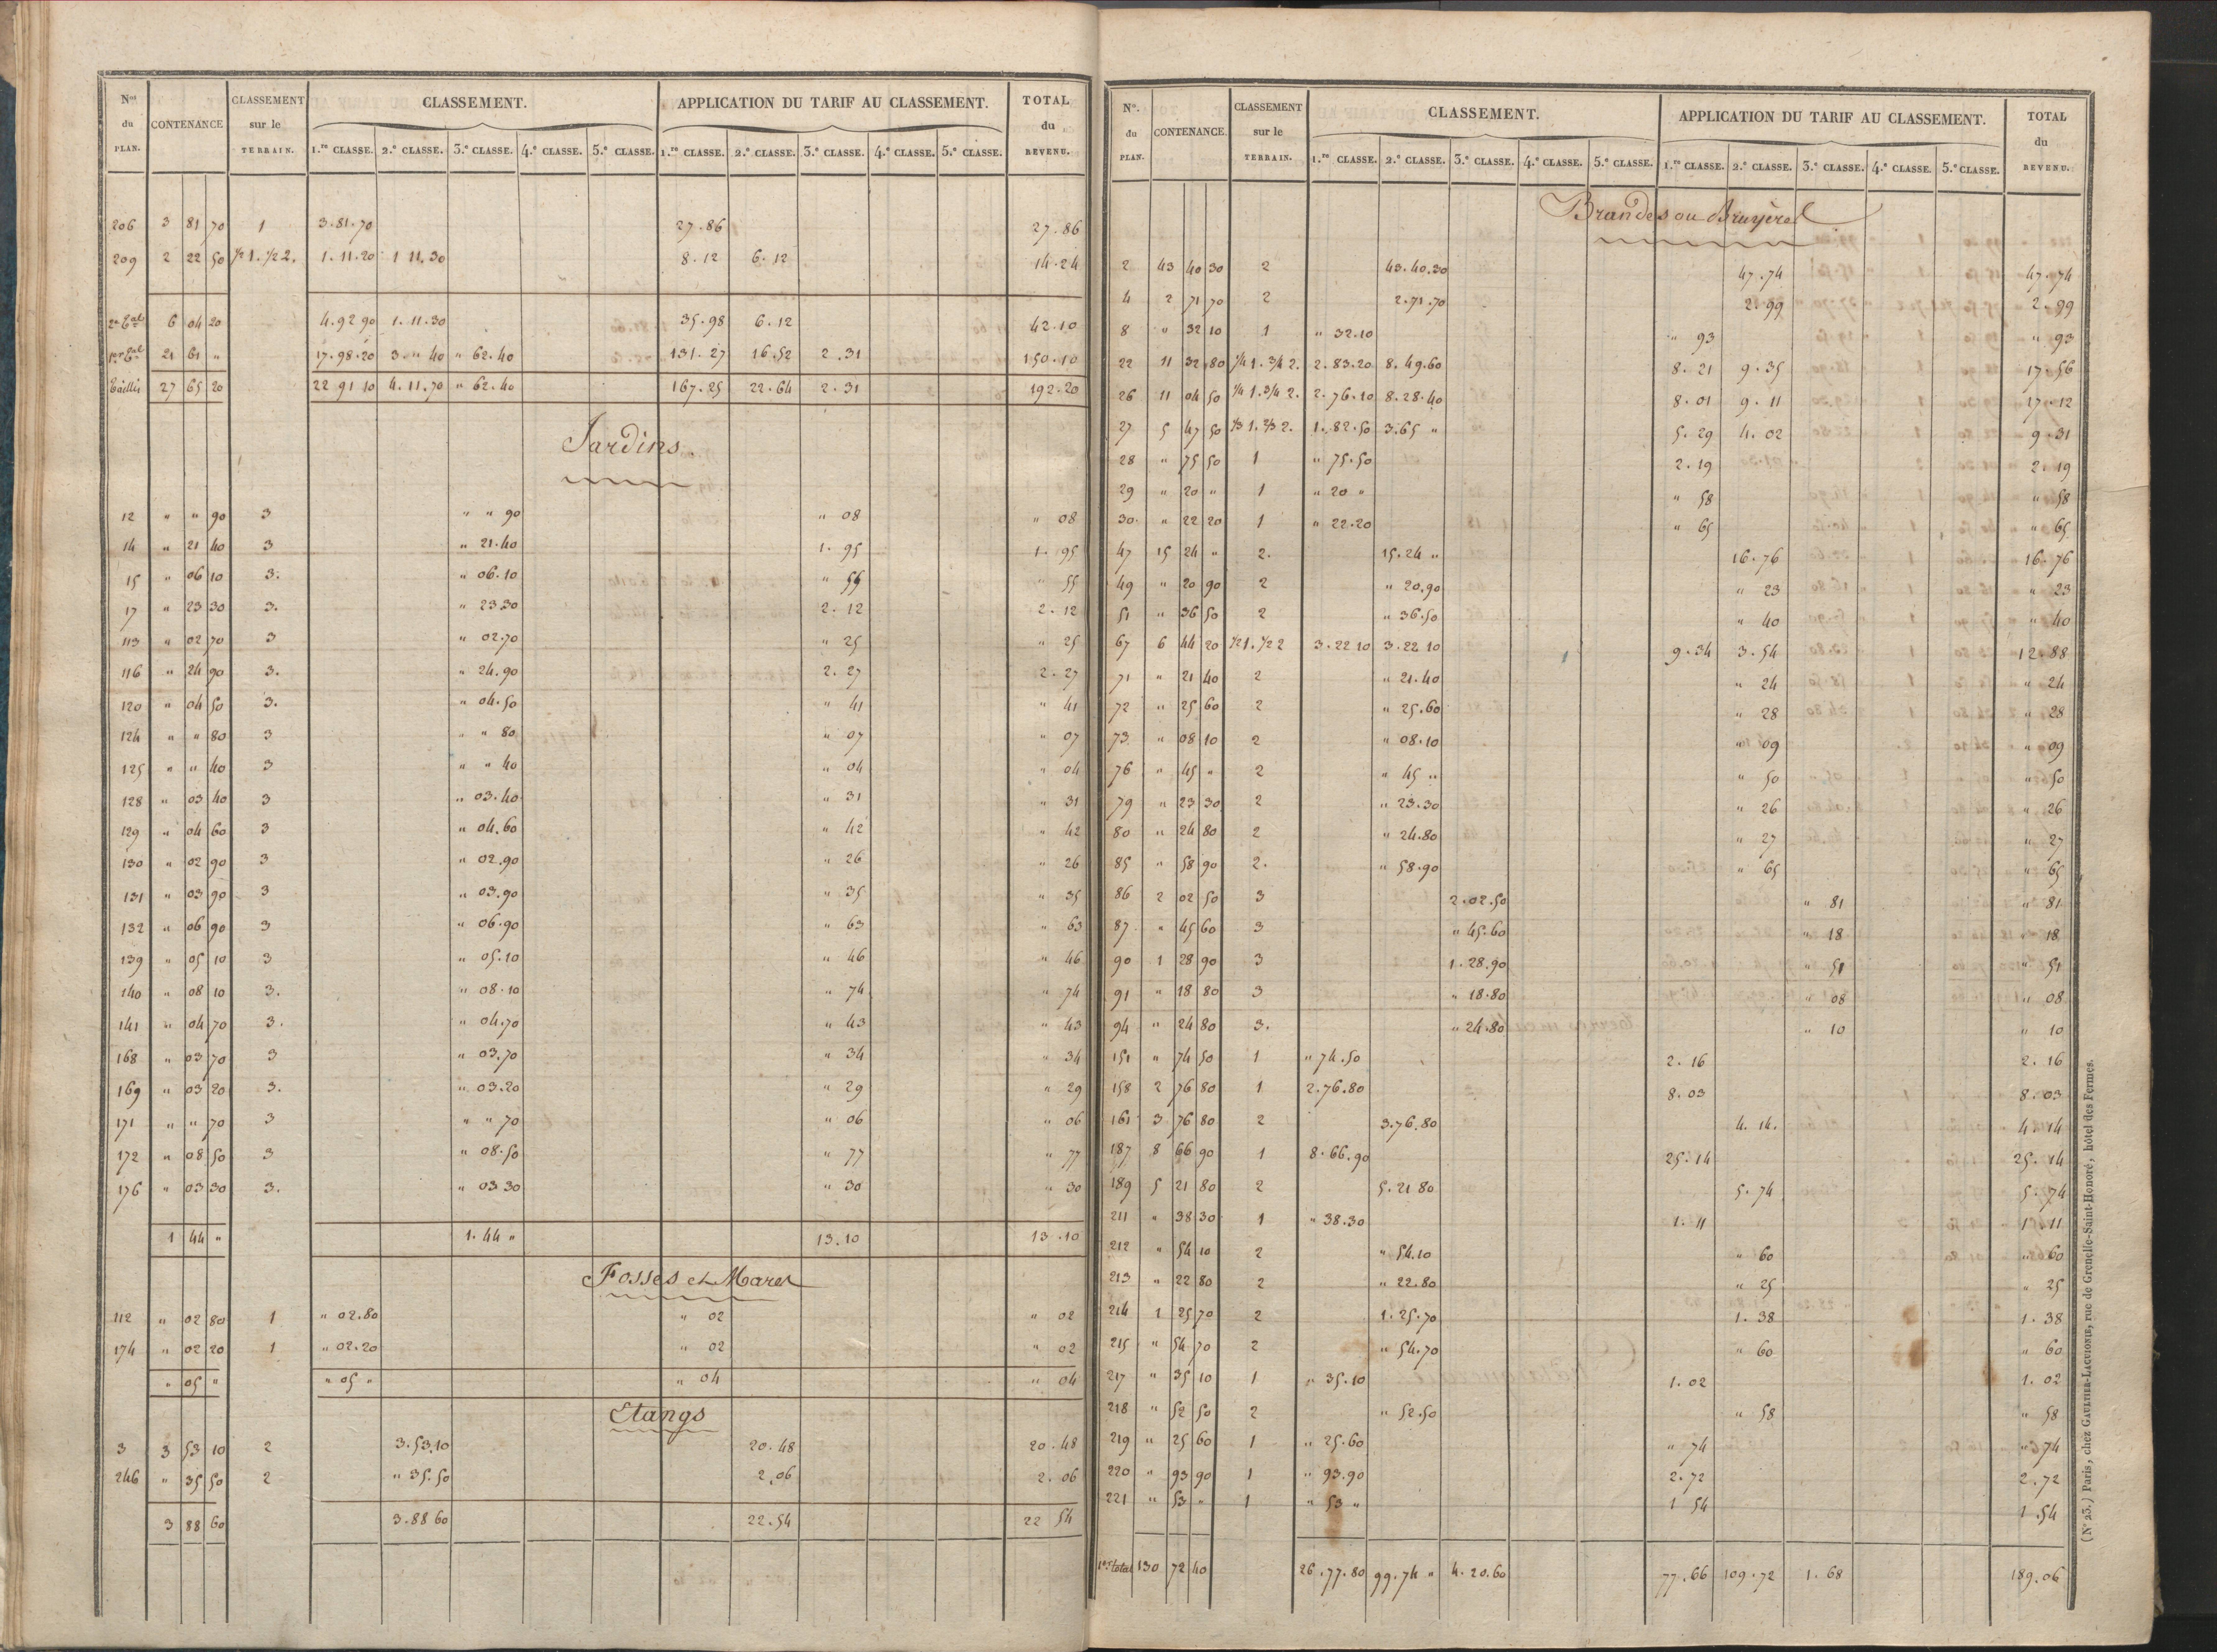 Nos du PLAN. CONTENANCE CLASSEMENT sur le TERRAIN. CLASSEMENT. APPLICATION DU TARIF AU CLASSEMENT. TOTAL du REVENU.
1.re CLASSE. 2.e CLASSE. 3.e CLASSE. 4.e CLASSE. 5.e CLASSE. 1.re CLASSE. 2.e CLASSE. 3.e CLASSE. 4.e CLASSE. 5.e CLASSE.
206 3 81 70 1 3.81.70 27.86 27.86
209 2 22 50 1/2 1. 1/2 2. 1.11.20 1 11.30 8.12 6.12 14.24
2e Tal 6 04 20 4.92 90 1.11.30 35.98 6.12 42.10
1er Tal 21 61 " 17.98.20 3." 40 " 62.40 131.27 16.52 2.31 150.10
Taillis 27 65 20 22 91 10 4.11.70 " 62.40 167.25 22.64 2.31 192.20
Jardins.
12 " " 90 3 " " 90 " 08 " 08
14 " 21 40 3 " 21.40 1.95 1.95
15 " 06 10 3. " 06.10 " 55 " 55
17 " 23 30 3. " 23 30 2.12 2.12
113 " 02 70 3 " 02.70 " 25 " 25
116 " 24 90 3. " 24.90 2.27 2.27
120 " 04 50 3. " 04.50 " 41 " 41
124 " " 80 3 " " 80 " 07 " 07
125 " " 40 3 " " 40 " 04 " 04
128 " 03 40 3 " 03.40 " 31 " 31
129 " 04 60 3 " 04.60 " 42 " 42
130 " 02 90 3 " 02.90 " 26 " 26
131 " 03 90 3 " 03.90 " 35 " 35
132 " 06 90 3 " 06.90 " 63 " 63
139 " 05 10 3 " 05.10 " 46 " 46
140 " 08 10 3. " 08.10 " 74 " 74
141 " 04 70 3. " 04.70 " 43 " 43
168 " 03 70 3 " 03.70 " 34 " 34
169 " 03 20 3. " 03.20 " 29 " 29
171 " " 70 3 " " 70 " 06 " 06
172 " 08 50 3 " 08.50 " 77 " 77
176 " 03 30 3. " 03 30 " 30 " 30
1 44 " 1.44 " 13.10 13.10
Fosses et Mares
112 " 02 80 1 " 02.80 " 02 " 02
174 " 02 20 1 " 02.20 " 02 " 02
" 05 " " 05 " " 04 " 04
Etangs
3 3 53 10 2 3.53.10 20.48 20.48
246 " 35 50 2 " 35.50 2.06 2.06
3 88 60 3.88 60 22.54 22 54
No. du PLAN. CONTENANCE. CLASSEMENT sur le TERRAIN. CLASSEMENT. APPLICATION DU TARIF AU CLASSEMENT. TOTAL du REVENU.
1.re CLASSE. 2.e CLASSE. 3.e CLASSE. 4.e CLASSE. 5.e CLASSE. 1.re CLASSE. 2.e CLASSE. 3.e CLASSE. 4.e CLASSE. 5.e CLASSE.
Brandes ou Bruyères
2 43 40 30 2 43.40.30 47.74 47.74
4 2 71 70 2 2.71.70 2.99 2.99
8 " 32 10 1 " 32.10 " 93 " 93
22 11 32 80 1/4 1. 3/4 2. 2.83.20 8.49.60 8.21 9.35 17.56
26 11 04 50 1/4 1. 3/4 2. 2.76.10 8.28.40 8.01 9.11 17.12
27 5 47 50 1/3 1. 2/3 2. 1.82.50 3.65 " 5.29 4.02 9.31
28 " 75 50 1 " 75.50 2.19 2.19
29 " 20 " 1 " 20 " " 58 " 58
30. " 22 20 1 " 22.20 " 65 " 65
47 15 24 " 2. 15.24 " 16.76 16.76
49 " 20 90 2 " 20.90 " 23 " 23
51 " 36 50 2 " 36.50 " 40 " 40
67 6 44 20 1/2 1. 1/2 2 3.22 10 3.22 10 9.34 3.54 12.88
71 " 21 40 2 " 21.40 " 24 " 24
72 " 25 60 2 " 25.60 " 28 " 28
73 " 08 10 2 " 08.10 " 09 " 09
76 " 45 " 2 " 45 " " 50 " 50
79 " 23 30 2 " 23.30 " 26 " 26
80 " 24 80 2 " 24.80 " 27 " 27
85 " 58 90 2. " 58.90 " 65 " 65
86 2 02 50 3 2.02.50 " 81 " 81
87 " 45 60 3 " 45.60 " 18 " 18
90 1 28 90 3 1.28.90 " 51 " 51
91 " 18 80 3 " 18.80 " 08 " 08
94 " 24 80 3. " 24.80 " 10 " 10
151 " 74 50 1 " 74.50 2.16 2.16
158 2 76 80 1 2.76.80 8.03 8.03
161 3 76 80 2 3.76.80 4.14. 4.14
187 8 66 90 1 8.66.90 25.14 25.14
189 5 21 80 2 5.21 80 5.74 5.74
211 " 38 30 1 " 38.30 1.11 1.11
212 " 54 10 2 " 54.10 " 60 " 60
213 " 22 80 2 " 22.80 " 25 " 25
214 1 25 70 2 1.25.70 1.38 1.38
215 " 54 70 2 " 54.70 " 60 " 60
217 " 35 10 1 " 35.10 1.02 1.02
218 " 52 50 2 " 52.50 " 58 " 58
219 " 25 60 1 " 25.60 " 74 " 74
220 " 93 90 1 " 93.90 2.72 2.72
221 " 53 " 1 " 53 " 1 54 1.54
1er total 130 72 40 26.77.80 99.74 " 4.20.60 77.66 109.72 1.68 189.06
(N° 23.) Paris, chez GAULTIER-LAGUIONIE, rue de Grenelle-Saint-Honoré, hôtel des Fermes.